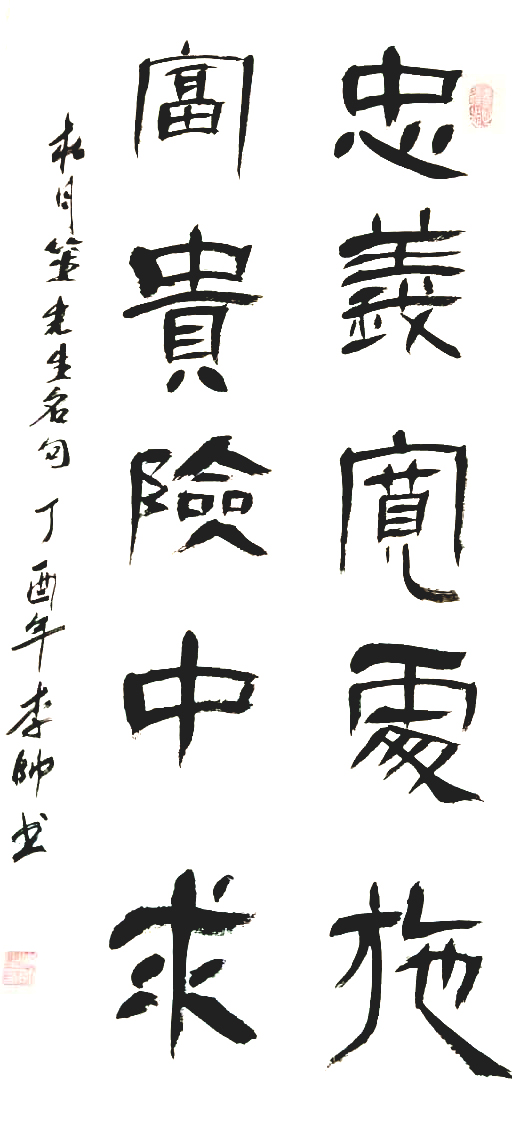 忠義寬處施
富貴險中求
杜月笙先生名句 丁酉年 李帥书